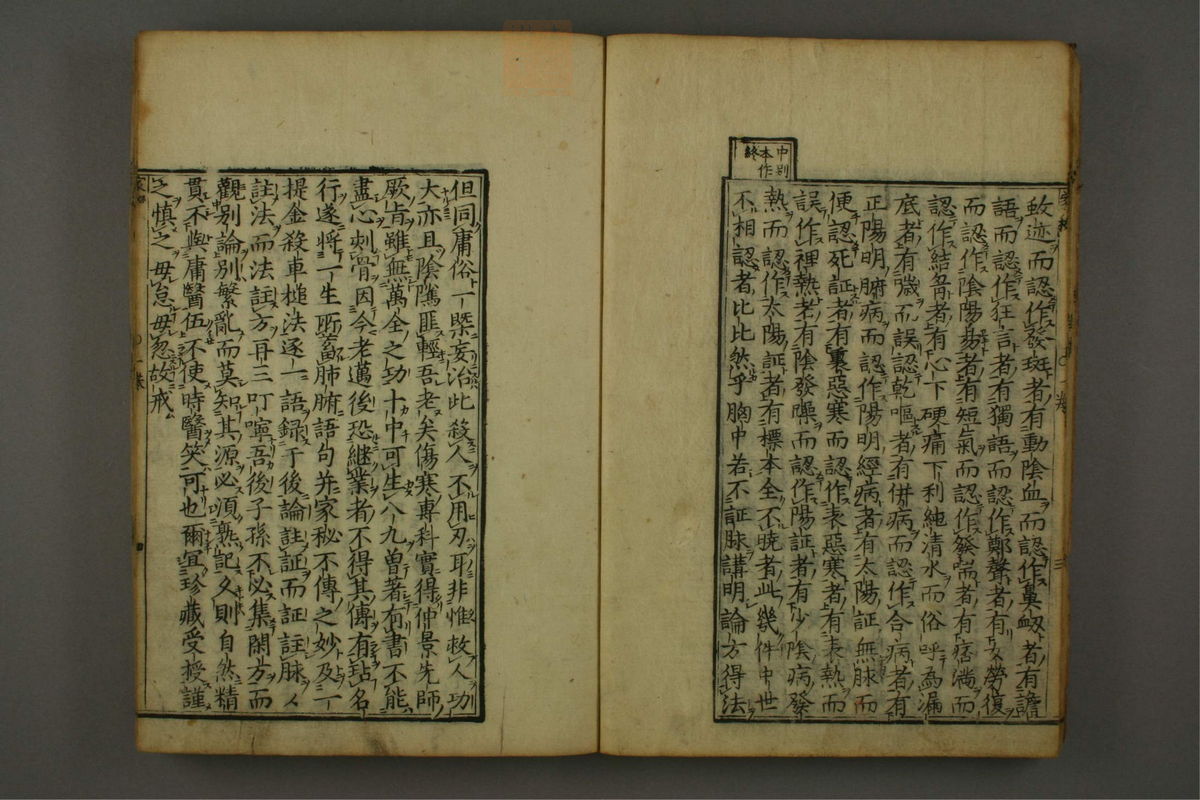 中別
本作
終
蚊迹而認作發斑者有動陰血而認作鼻衂者有譫
語而認作狂言者有獨語而認作鄭聲者有女勞復
而認作陰陽易者有短氣而認作發喘者有痞滿而
認作結胷者有心下硬痛下利純清水而俗呼為漏
底者有噦而誤認乾嘔者有併病而認作合病者有
正陽明腑病而認作陽明經病者有太陽証無脉而
便認死証者有裏惡寒而認作表惡寒者有表熱而
誤作裡熱者有陰發躁而認作陽証者有少陰病發
熱而認作太陽証者有標本全不曉者此幾件中世
不相認者比比然乎胸中若不証脉講明論方得法
但同庸俗一槩妄治此殺人不用刃耳非惟救人功
大亦且陰隲匪輕吾老矣傷寒專科實得仲景先師
厥肯雖無萬全之功十中可生八九曽著有書不能
盡心刺骨因今老邁後恐継業者不得其傳有玷名
行遂將一生所畜肺腑語句并家秘不傳之妙及一
提金殺車槌法逐一語録于後論註証而証註脉
註法而法註方再三叮嚀吾後子孫不必集閑方而
觀別論別繁亂而莫知其源必須熟記久則自然精
貫不與庸醫伍不使時醫笑可也爾宜珍藏受授謹
之慎之毋怠毋忽故戒